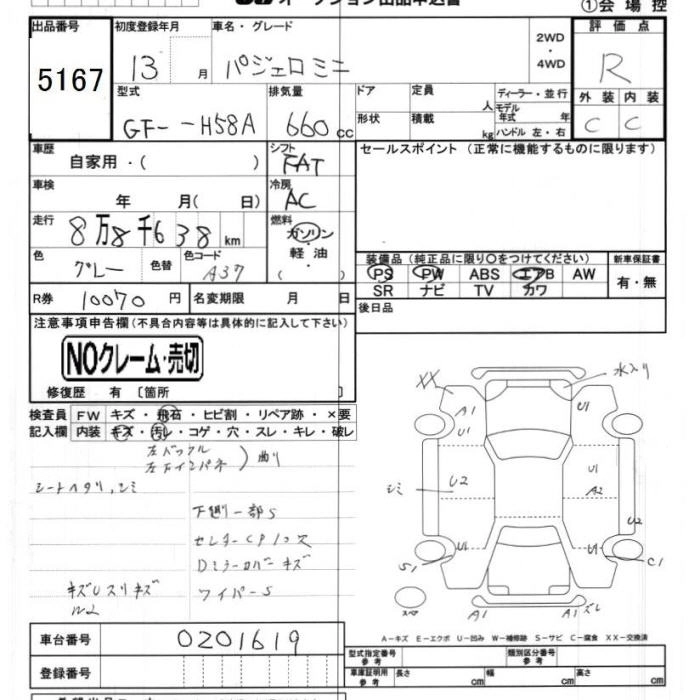 ①会場控
出品番号
5167
初度登録年月
13 月
車名・グレード
パジェロミニ
2WD
・
4WD
評価点
R
外装 内装
C C
型式
GF- -H58A
排気量
660 cc
ドア
定員
人
形状
積載
kg
ディーラー・並行
モデル
年式 年
ハンドル 左・右
車歴
自家用・( )
シフト
FAT
セールスポイント (正常に機能するものに限ります)
車検
年 月( 日)
冷房
AC
走行
8万8千638 km
燃料
ガソリン
・
軽油
( )
色
グレー
色替
色コード
A37
装備品 (純正品に限り○をつけてください)
PS PW ABS エアB AW
SR ナビ TV カワ
新車保証書
有・無
R券 10070 円
名変期限 月 日
後日品
注意事項申告欄(不具合内容等は具体的に記入して下さい)
NOクレーム・売切
修復歴 有 [箇所 ]
検査員
記入欄
FW キズ・飛石・ヒビ割・リペア跡・×要
内装 キズ・汚レ・コゲ・穴・スレ・キレ・破レ
曲り
シートヘタリ、シミ
下廻り一部S
Dミラーカバーキズ
ワイパーS
水入り
XX
A1
U1
U1
シミ
U2
U1
A2
U2
S1
U1
U1
C1
スペア
A1
A1 ズレ
A-キズ E-エクボ U-凹み W-補修跡 S-サビ C-腐食 XX-交換済
車台番号
0201619
登録番号
型式指定番号
参考
類別区分番号
参考
車庫証明用
参考
長さ cm
幅 cm
高さ cm